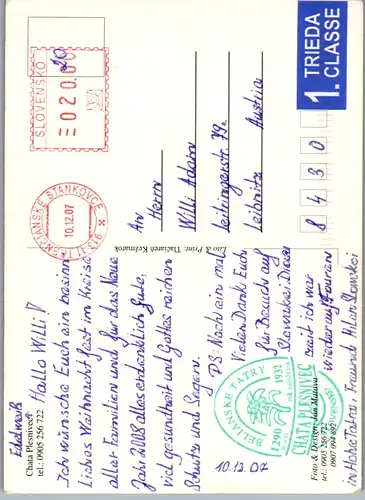 Edelweiß
Chata Plesnivec
tel.: 0905 256 722
Hallo Willi!
Ich wünsche Euch ein besinn
liches Weihnacht fest im Kreise
aller Familien und für das Neue
Jahr 2008 alles erdenklich Gute,
viel gesundheit und Gottes reichen
Schutz und Segen.
PS: Nach ein mal
Vielen Dank Euch
für Besuch auf
Slowakei. Diese
zeit ich war
wieder auf Touren
in Hohe Tatra, Freund Milan
10.12.07
SLOVENSKO
=020.00
20
TRENČIANSKE STANKOVCE
10.12.07
913 11
1. TRIEDA
CLASSE
An Herrn
Willi Adam
Leitingerstr. 79a
Leibnitz Austria
8430
Lito & Print: Tlačiareň Kežmarok
BELIANSKE TATRY
1290 m
1932
CHATA PLESNIVEC
Foto & Design: Ján Matava
tel.: 0905 256 722
0907 094 892